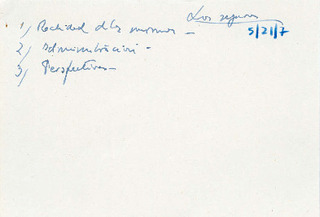 Los seguros
5/21/7
1) Realidad de las mismas —
2) Administración —
3) Perspectivas —